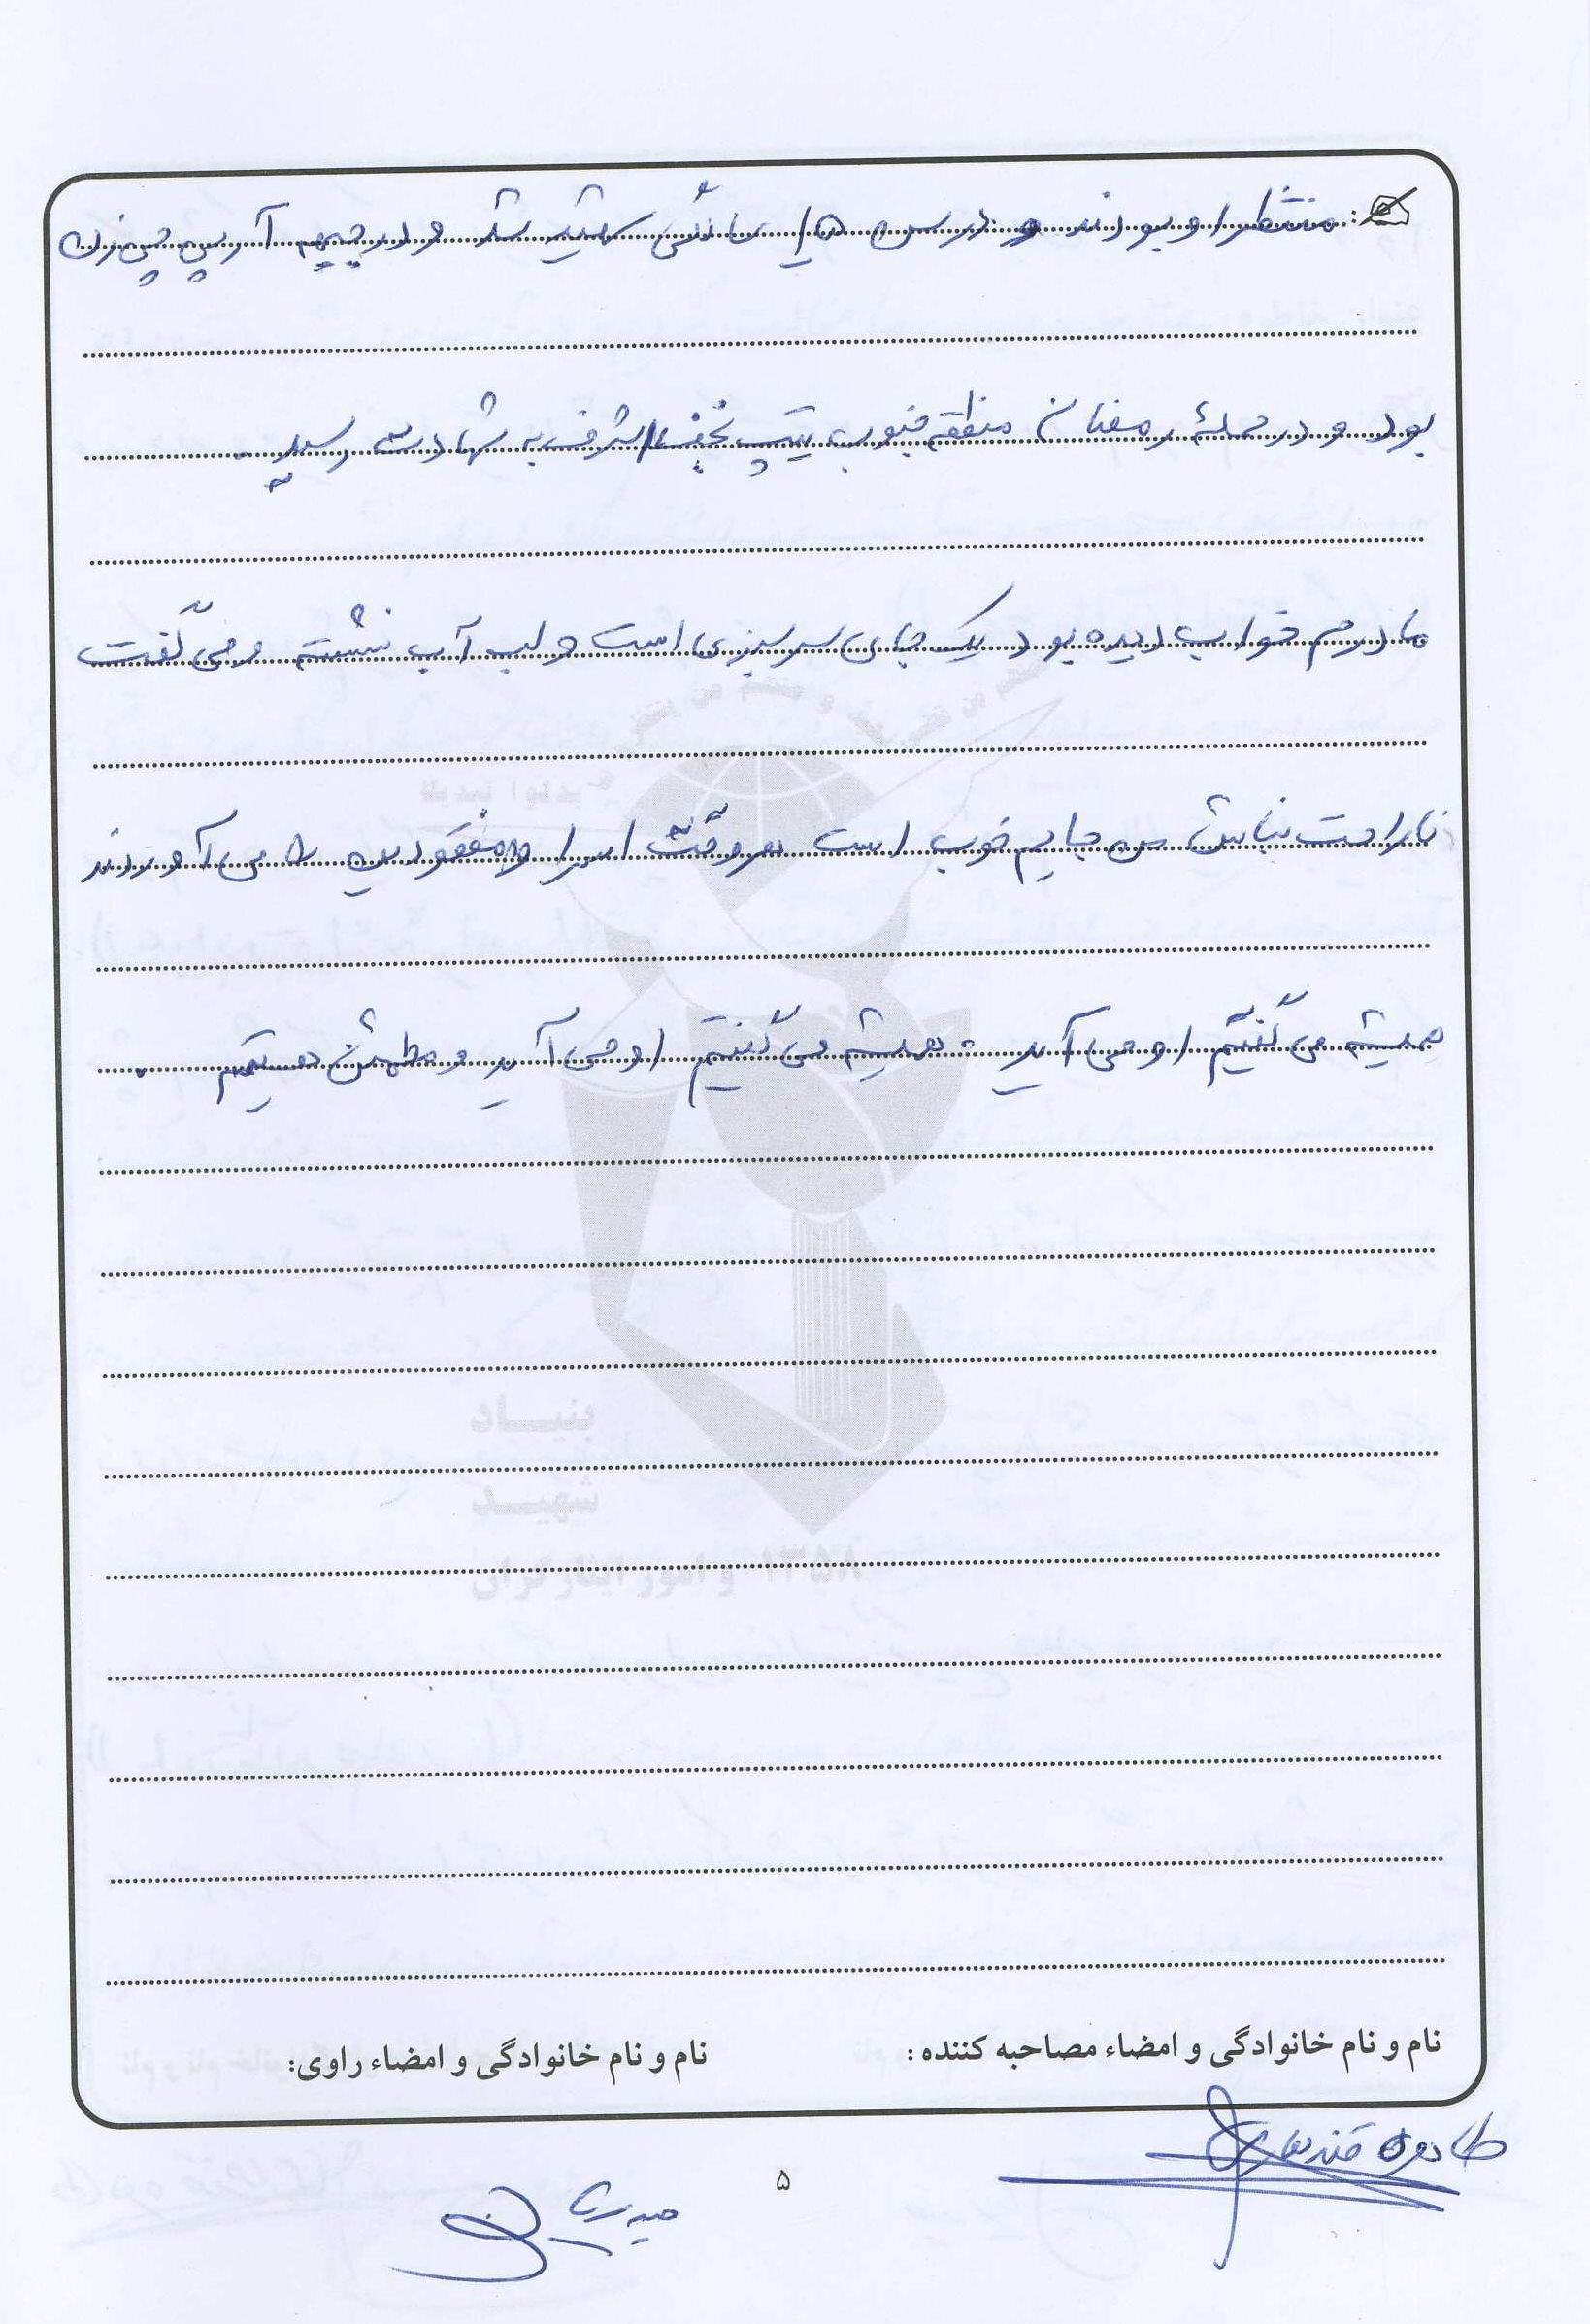 منتظر او بودند و در سن ۱۵ سالگی شهید شد و در جبهه آرپی چی زن
بود و در حملهٔ رمضان منطقه جنوب تیپ نجف اشرف به شهادت رسید.
مادرم خواب دیده بود یک جای سرسبزی است و لب آب نشسته و می گفت
ناراحت نباش من جایم خوب است هر وقت اسرا و مفقودین را می آوردند
همیشه می گفتیم او می آید. همیشه می گفتیم او می آید و مطمئن هستیم.
بنیاد
شهید
و امور ایثارگران ۱۳۵۸
نام و نام خانوادگی و امضاء مصاحبه کننده : نام و نام خانوادگی و امضاء راوی:
طاهره قندهاری
۵